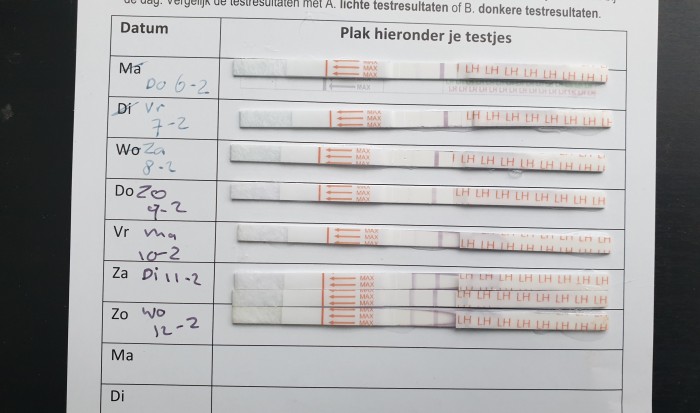 de dag. Vergelijk de testresultaten met A. lichte testresultaten of B. donkere testresultaten.
Datum Plak hieronder je testjes
Ma MAX MAX MAX LH LH LH LH LH LH LH LH
Do 6-2 MAX
Di Vr MAX MAX MAX LH LH LH LH LH LH LH LH
7-2
Wo Za MAX MAX MAX LH LH LH LH LH LH LH LH
8-2
Do Zo MAX MAX MAX LH LH LH LH LH LH LH LH
9-2
Vr ma MAX MAX MAX LH LH LH LH LH LH LH LH
10-2
Za Di 11-2 MAX MAX MAX LH LH LH LH LH LH LH LH
MAX MAX LH LH LH LH LH LH LH LH
Zo Wo MAX MAX MAX LH LH LH LH LH LH LH LH
12-2
Ma
Di